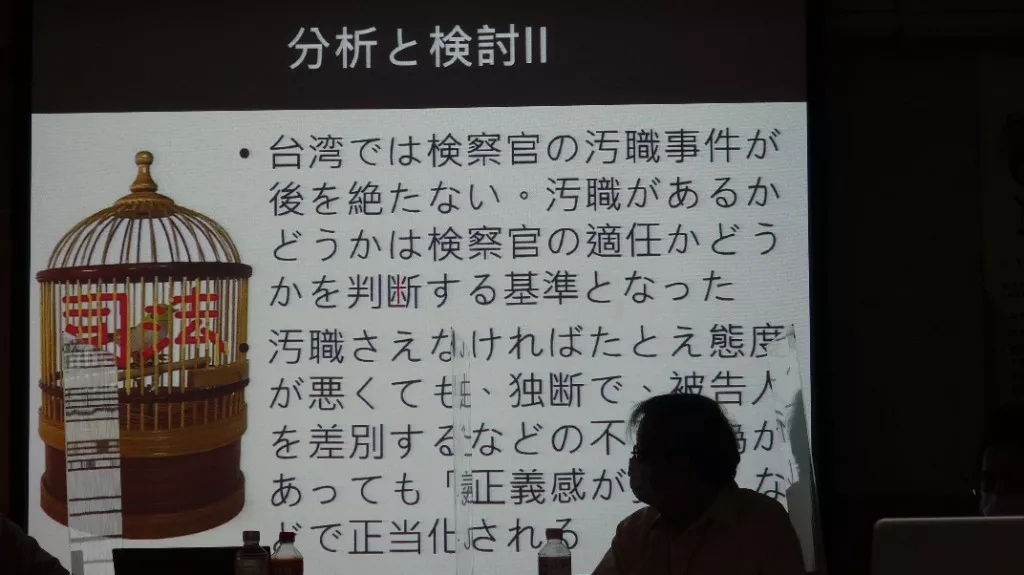 分析と検討II
• 台湾では検察官の汚職事件が
後を絶たない。汚職があるか
どうかは検察官の適任かどう
かを判断する基準となった
• 汚職さえなければたとえ態度
が悪くても、独断で、被告人
を差別するなどの不
あっても「正義感が な
どで正当化される
司法